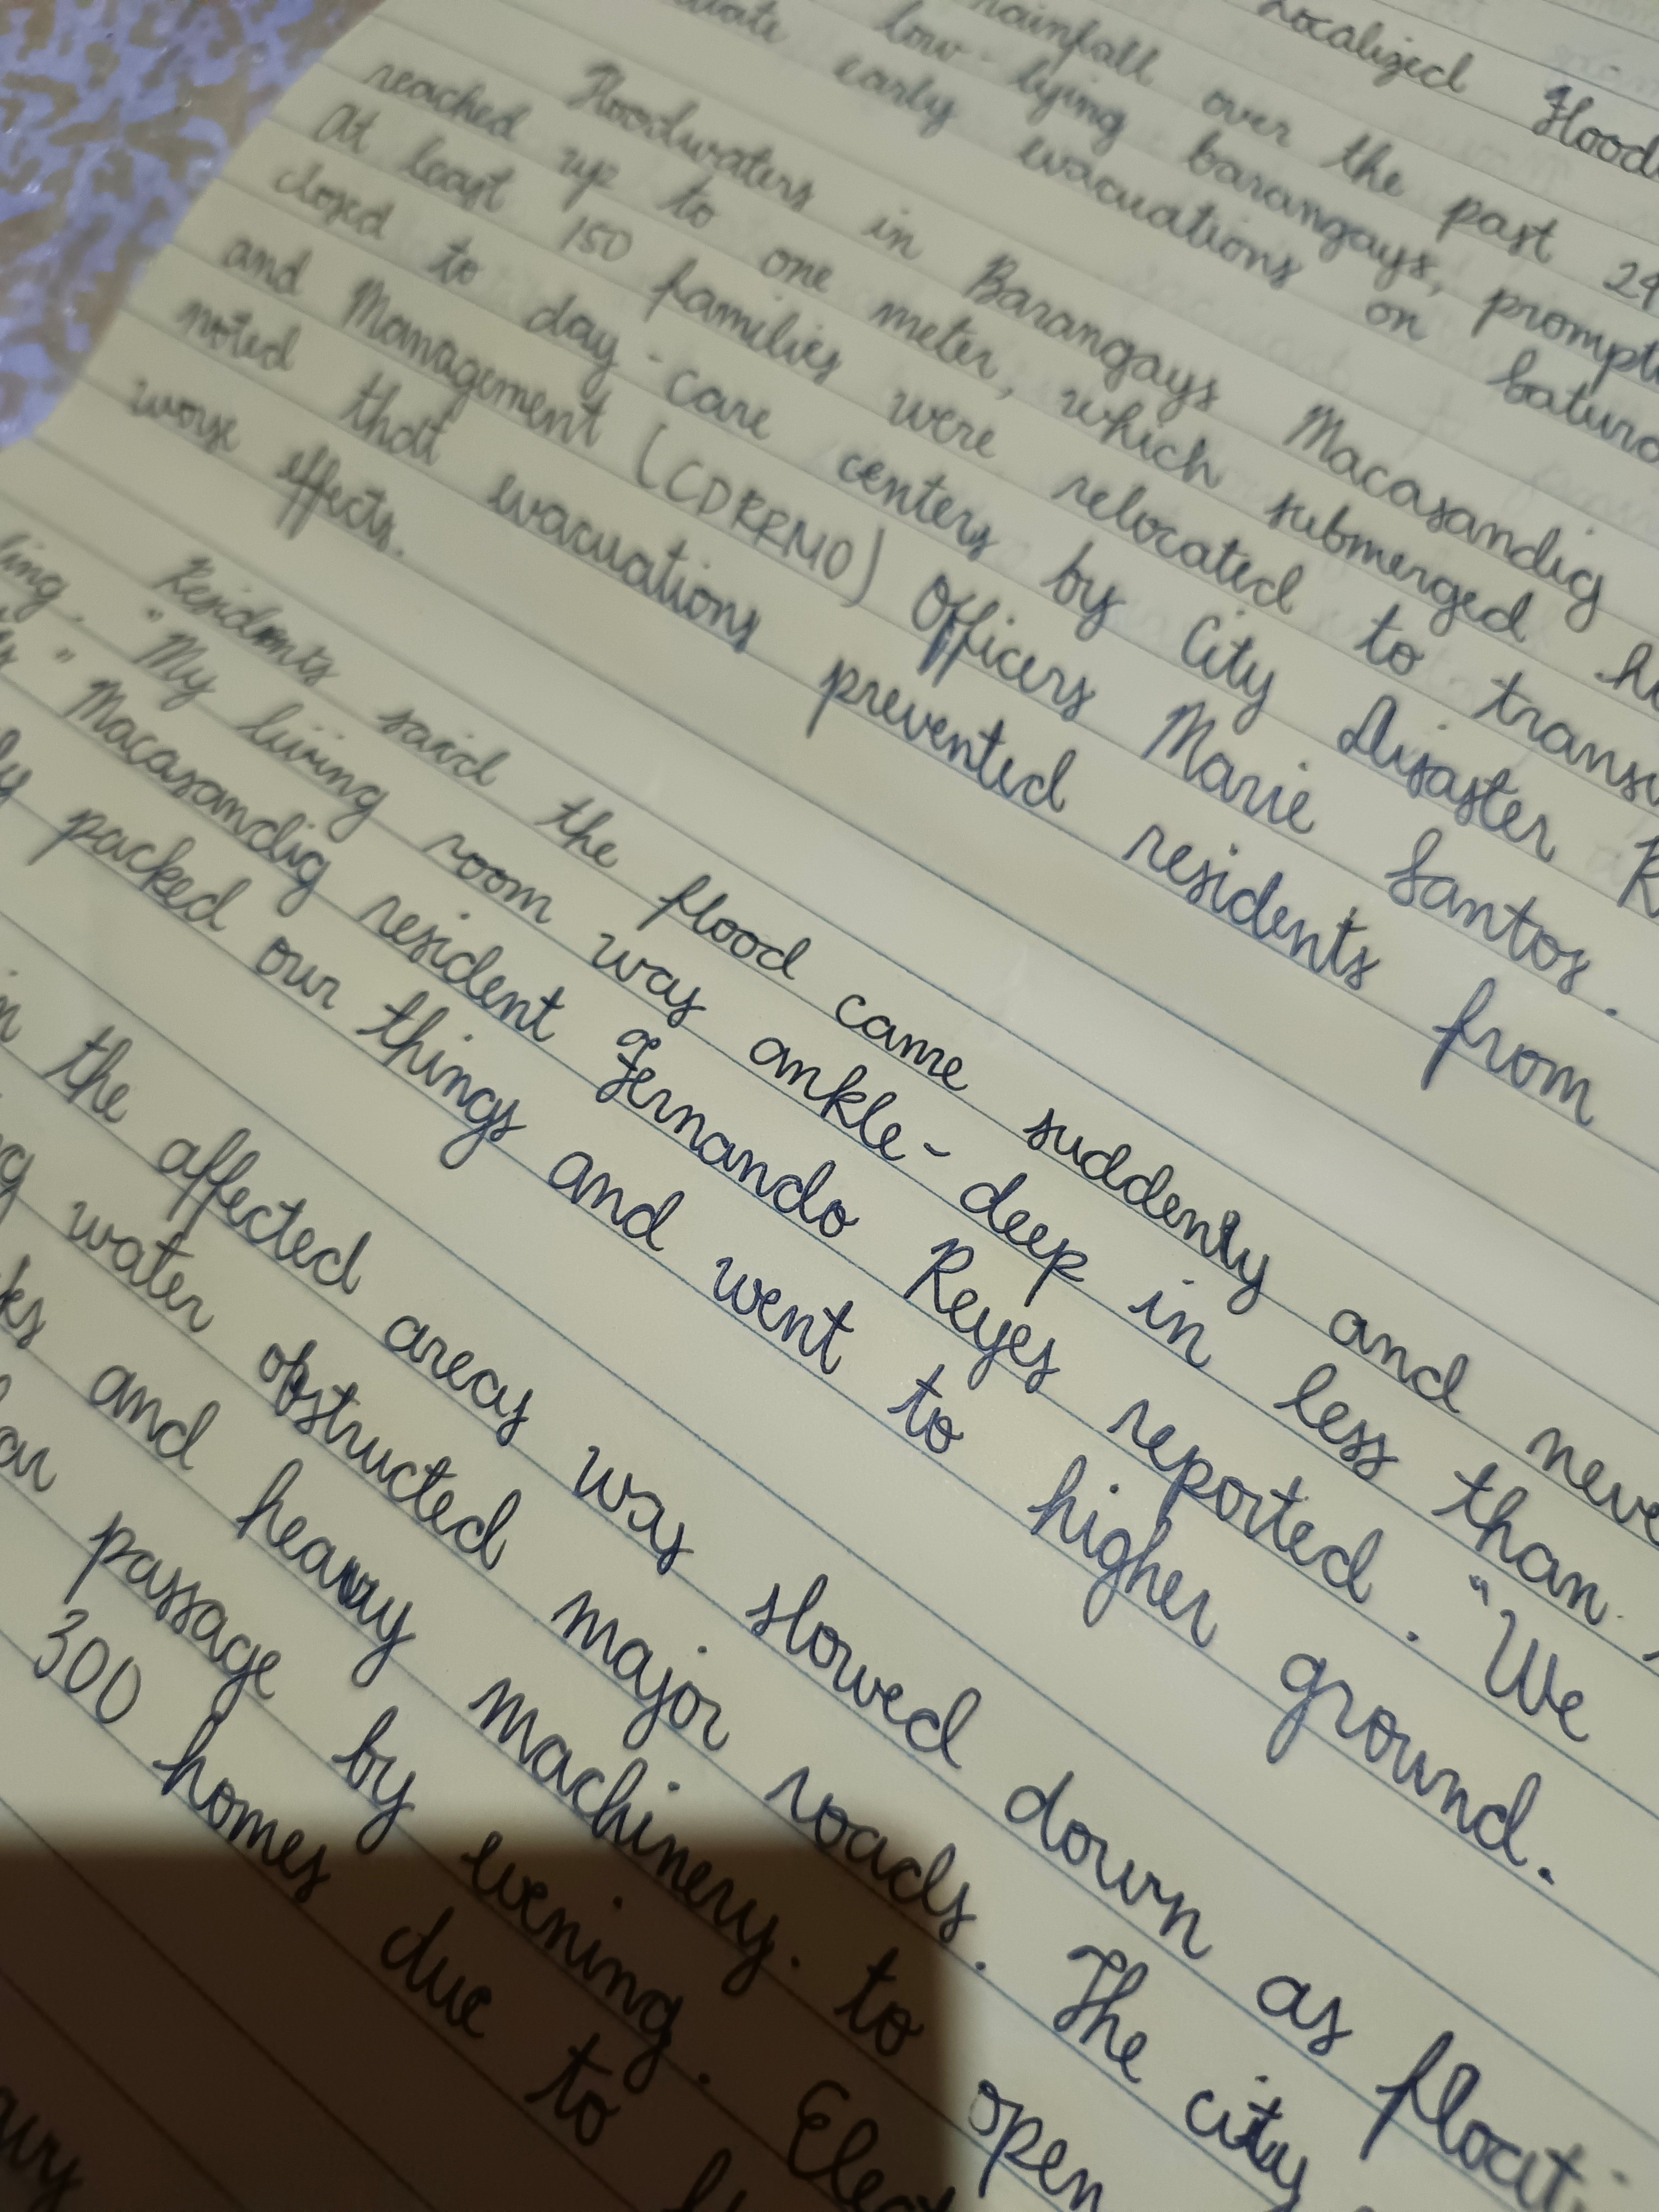 Localized Flood
rainfall over the past 24
low-lying barangays, prompt
early evacuations on Saturd
Floodwaters in Barangays Macasandig
reached up to one meter, which submerged h
At least 150 families were relocated to trans
closed to day-care centers by City Disaster R
and Management (CDRRMO) Officers Marie Santos.
noted that evacuations prevented residents from
worse effects.
Residents said the flood came suddenly and neve
ling. "My living room was ankle-deep in less than
" Macasandig resident Fernando Reyes reported. "We
ly packed our things and went to higher ground.
in the affected areas was slowed down as floati
g water obstructed major roads. The city
ks and heavy machinery. to open
passage by evening. Elect
300 homes due to